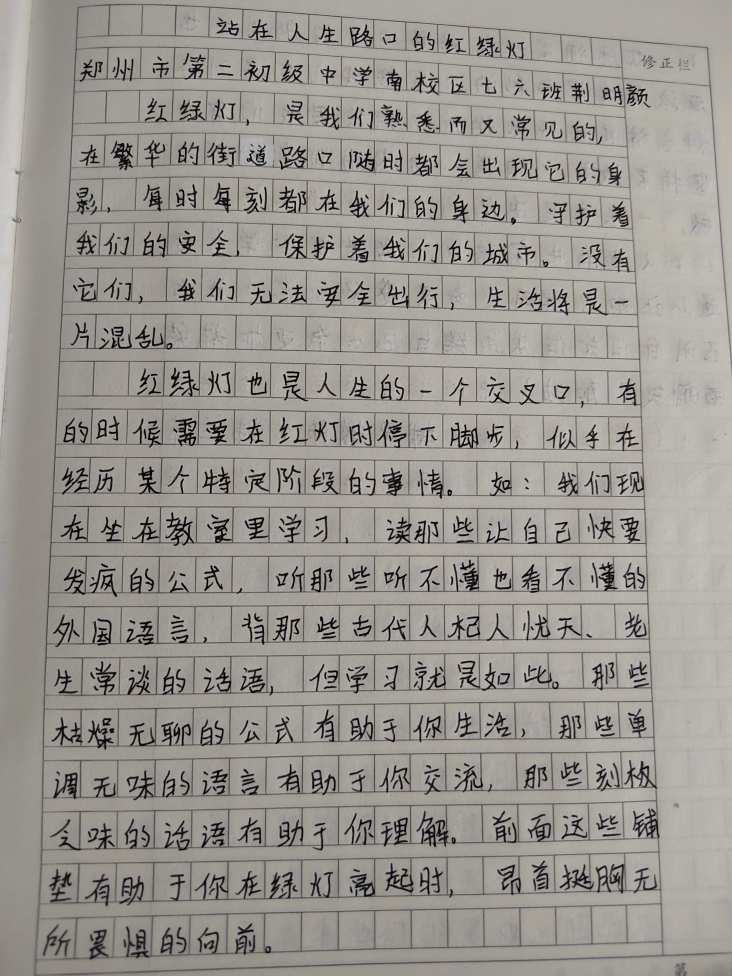 站在人生路口的红绿灯
修正栏
郑州市第二初级中学南校区七六班荆明颜
红绿灯，是我们熟悉而又常见的，
在繁华的街道路口随时都会出现它的身
影，每时每刻都在我们的身边。守护着
我们的安全，保护着我们的城市。没有
它们，我们无法安全出行，生活将是一
片混乱。
红绿灯也是人生的一个交叉口，有
的时候需要在红灯时停下脚步，似乎在
经历某个特定阶段的事情。如：我们现
在坐在教室里学习，读那些让自己快要
发疯的公式，听那些听不懂也看不懂的
外国语言，背那些古代人杞人忧天、老
生常谈的话语，但学习就是如此。那些
枯燥无聊的公式有助于你生活，那些单
调无味的语言有助于你交流，那些刻板
味的话语有助于你理解。前面这些铺
垫有助于你在绿灯亮起时，昂首挺胸无
所畏惧的向前。
第